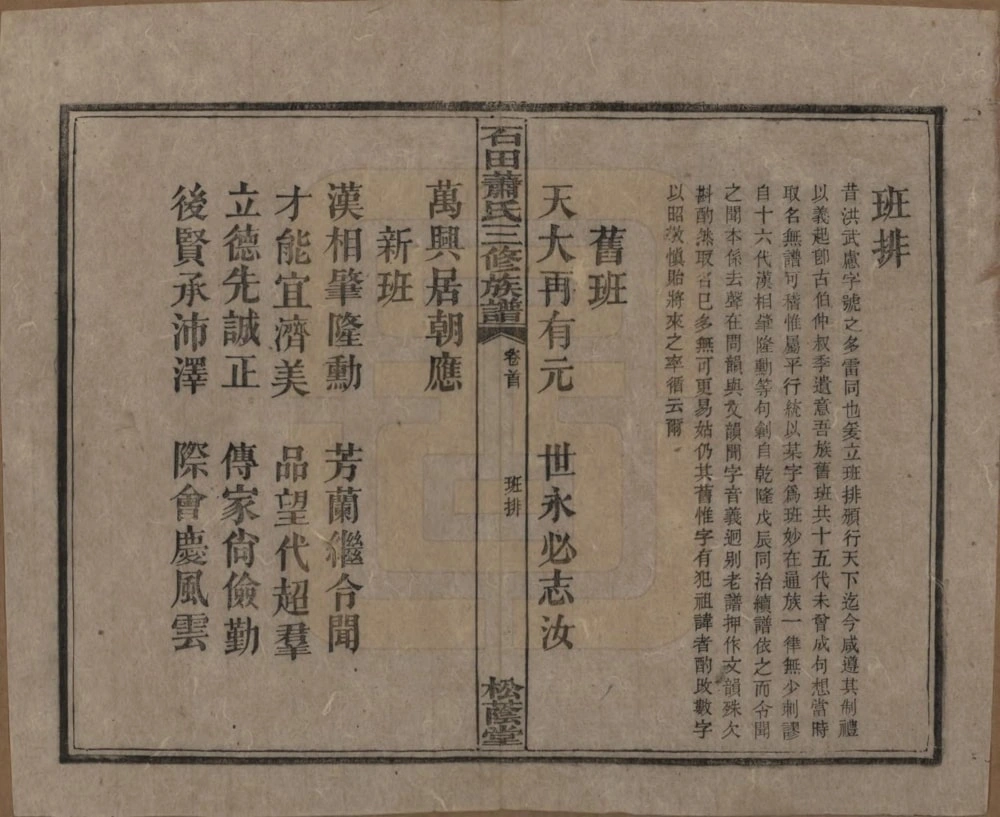 班排
昔洪武慮字號之多雷同也爰立班排頒行天下迄今咸遵其制禮
以義起卽古伯仲叔季遺意吾族舊班共十五代未曾成句想當時
取名無譜可稽惟屬平行統以某字爲班妙在通族一律無少刺謬
自十六代漢相肇隆勳等句創自乾隆戊辰同治續譜依之而令聞
之聞本係去聲在問韻與文韻聞字音義迥別老譜押作文韻殊欠
斟酌然取名已多無可更易姑仍其舊惟字有犯祖諱者酌改數字
以昭敬慎貽將來之率循云爾
舊班
天大再有元 世永必志汝
石田蕭氏三修族譜 卷首 班排 松蔭堂
萬興居朝應
新班
漢相肇隆勳 芳蘭繼令聞
才能宜濟美 品望代超羣
立德先誠正 傳家尙儉勤
後賢承沛澤 際會慶風雲